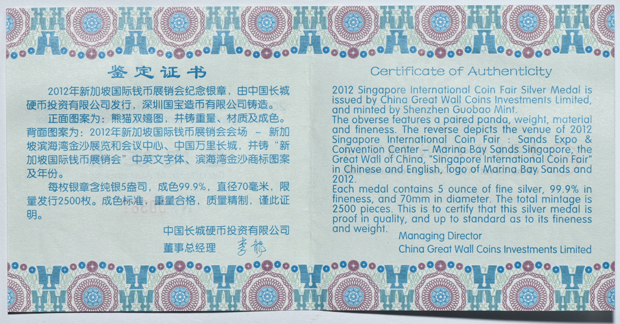 鉴定证书
2012年新加坡国际钱币展销会纪念银章，由中国长城
硬币投资有限公司发行，深圳国宝造币有限公司铸造。
正面图案为：熊猫双嬉图，并铸重量、材质及成色。
背面图案为：2012年新加坡国际钱币展销会会场 - 新加
坡滨海湾金沙展览和会议中心、中国万里长城，并铸“新
加坡国际钱币展销会”中英文字体、滨海湾金沙商标图案
及年份。
每枚银章含纯银5盎司，成色99.9%，直径70毫米，限
量发行2500枚。成色标准，重量合格，质量精制，谨此证
明。
中国长城硬币投资有限公司
董事总经理
Certificate of Authenticity
2012 Singapore International Coin Fair Silver Medal is
issued by China Great Wall Coins Investments Limited,
and minted by Shenzhen Guobao Mint.
The obverse features a paired panda, weight, material
and fineness. The reverse depicts the venue of 2012
Singapore International Coin Fair : Sands Expo &
Convention Center – Marina Bay Sands Singapore, the
Great Wall of China, "Singapore International Coin Fair"
in Chinese and English, logo of Marina Bay Sands and
2012.
Each medal contains 5 ounce of fine silver, 99.9% in
fineness, and 70mm in diameter. The total mintage is
2500 pieces. This is to certify that this silver medal is
proof in quality, and up to standard as to its fineness
and weight.
Managing Director
China Great Wall Coins Investments Limited